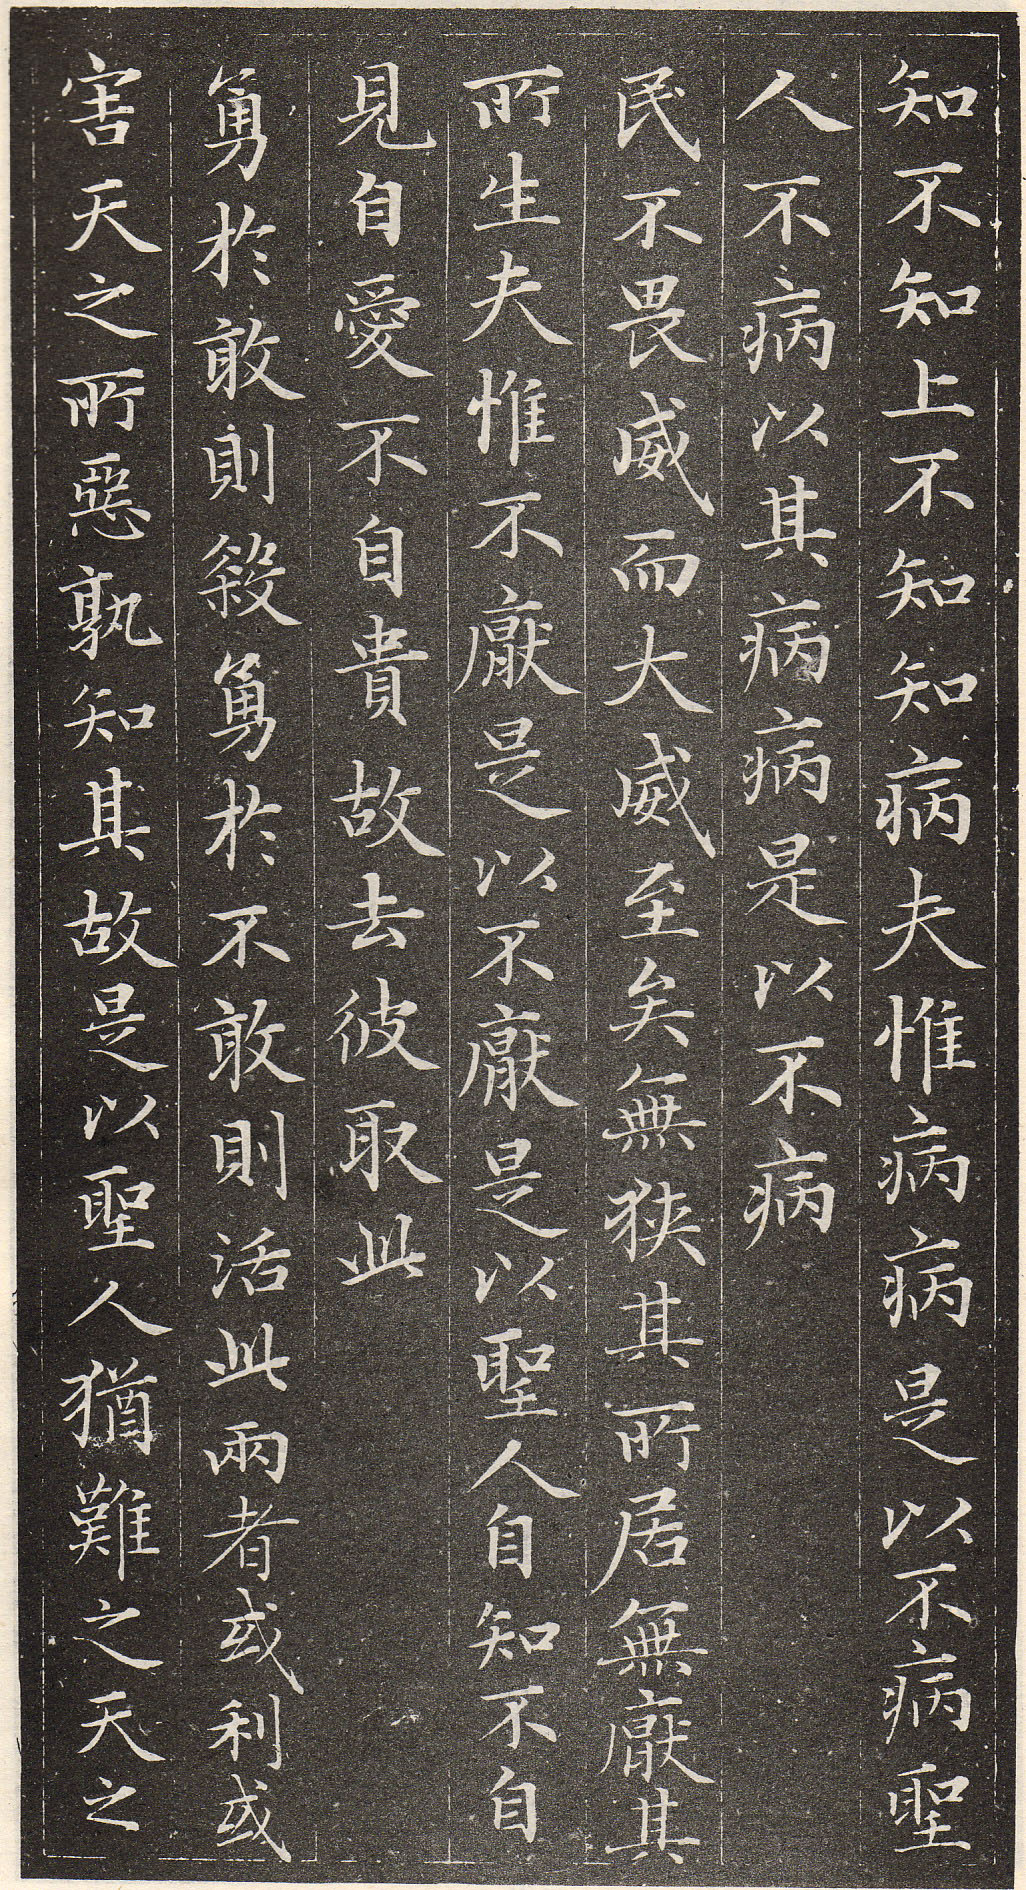 知不知上不知知病夫惟病病是以不病聖
人不病以其病病是以不病
民不畏威而大威至矣無狹其所居無厭其
所生夫惟不厭是以不厭是以聖人自知不自
見自愛不自貴故去彼取此
勇於敢則殺勇於不敢則活此兩者或利或
害天之所惡孰知其故是以聖人猶難之天之